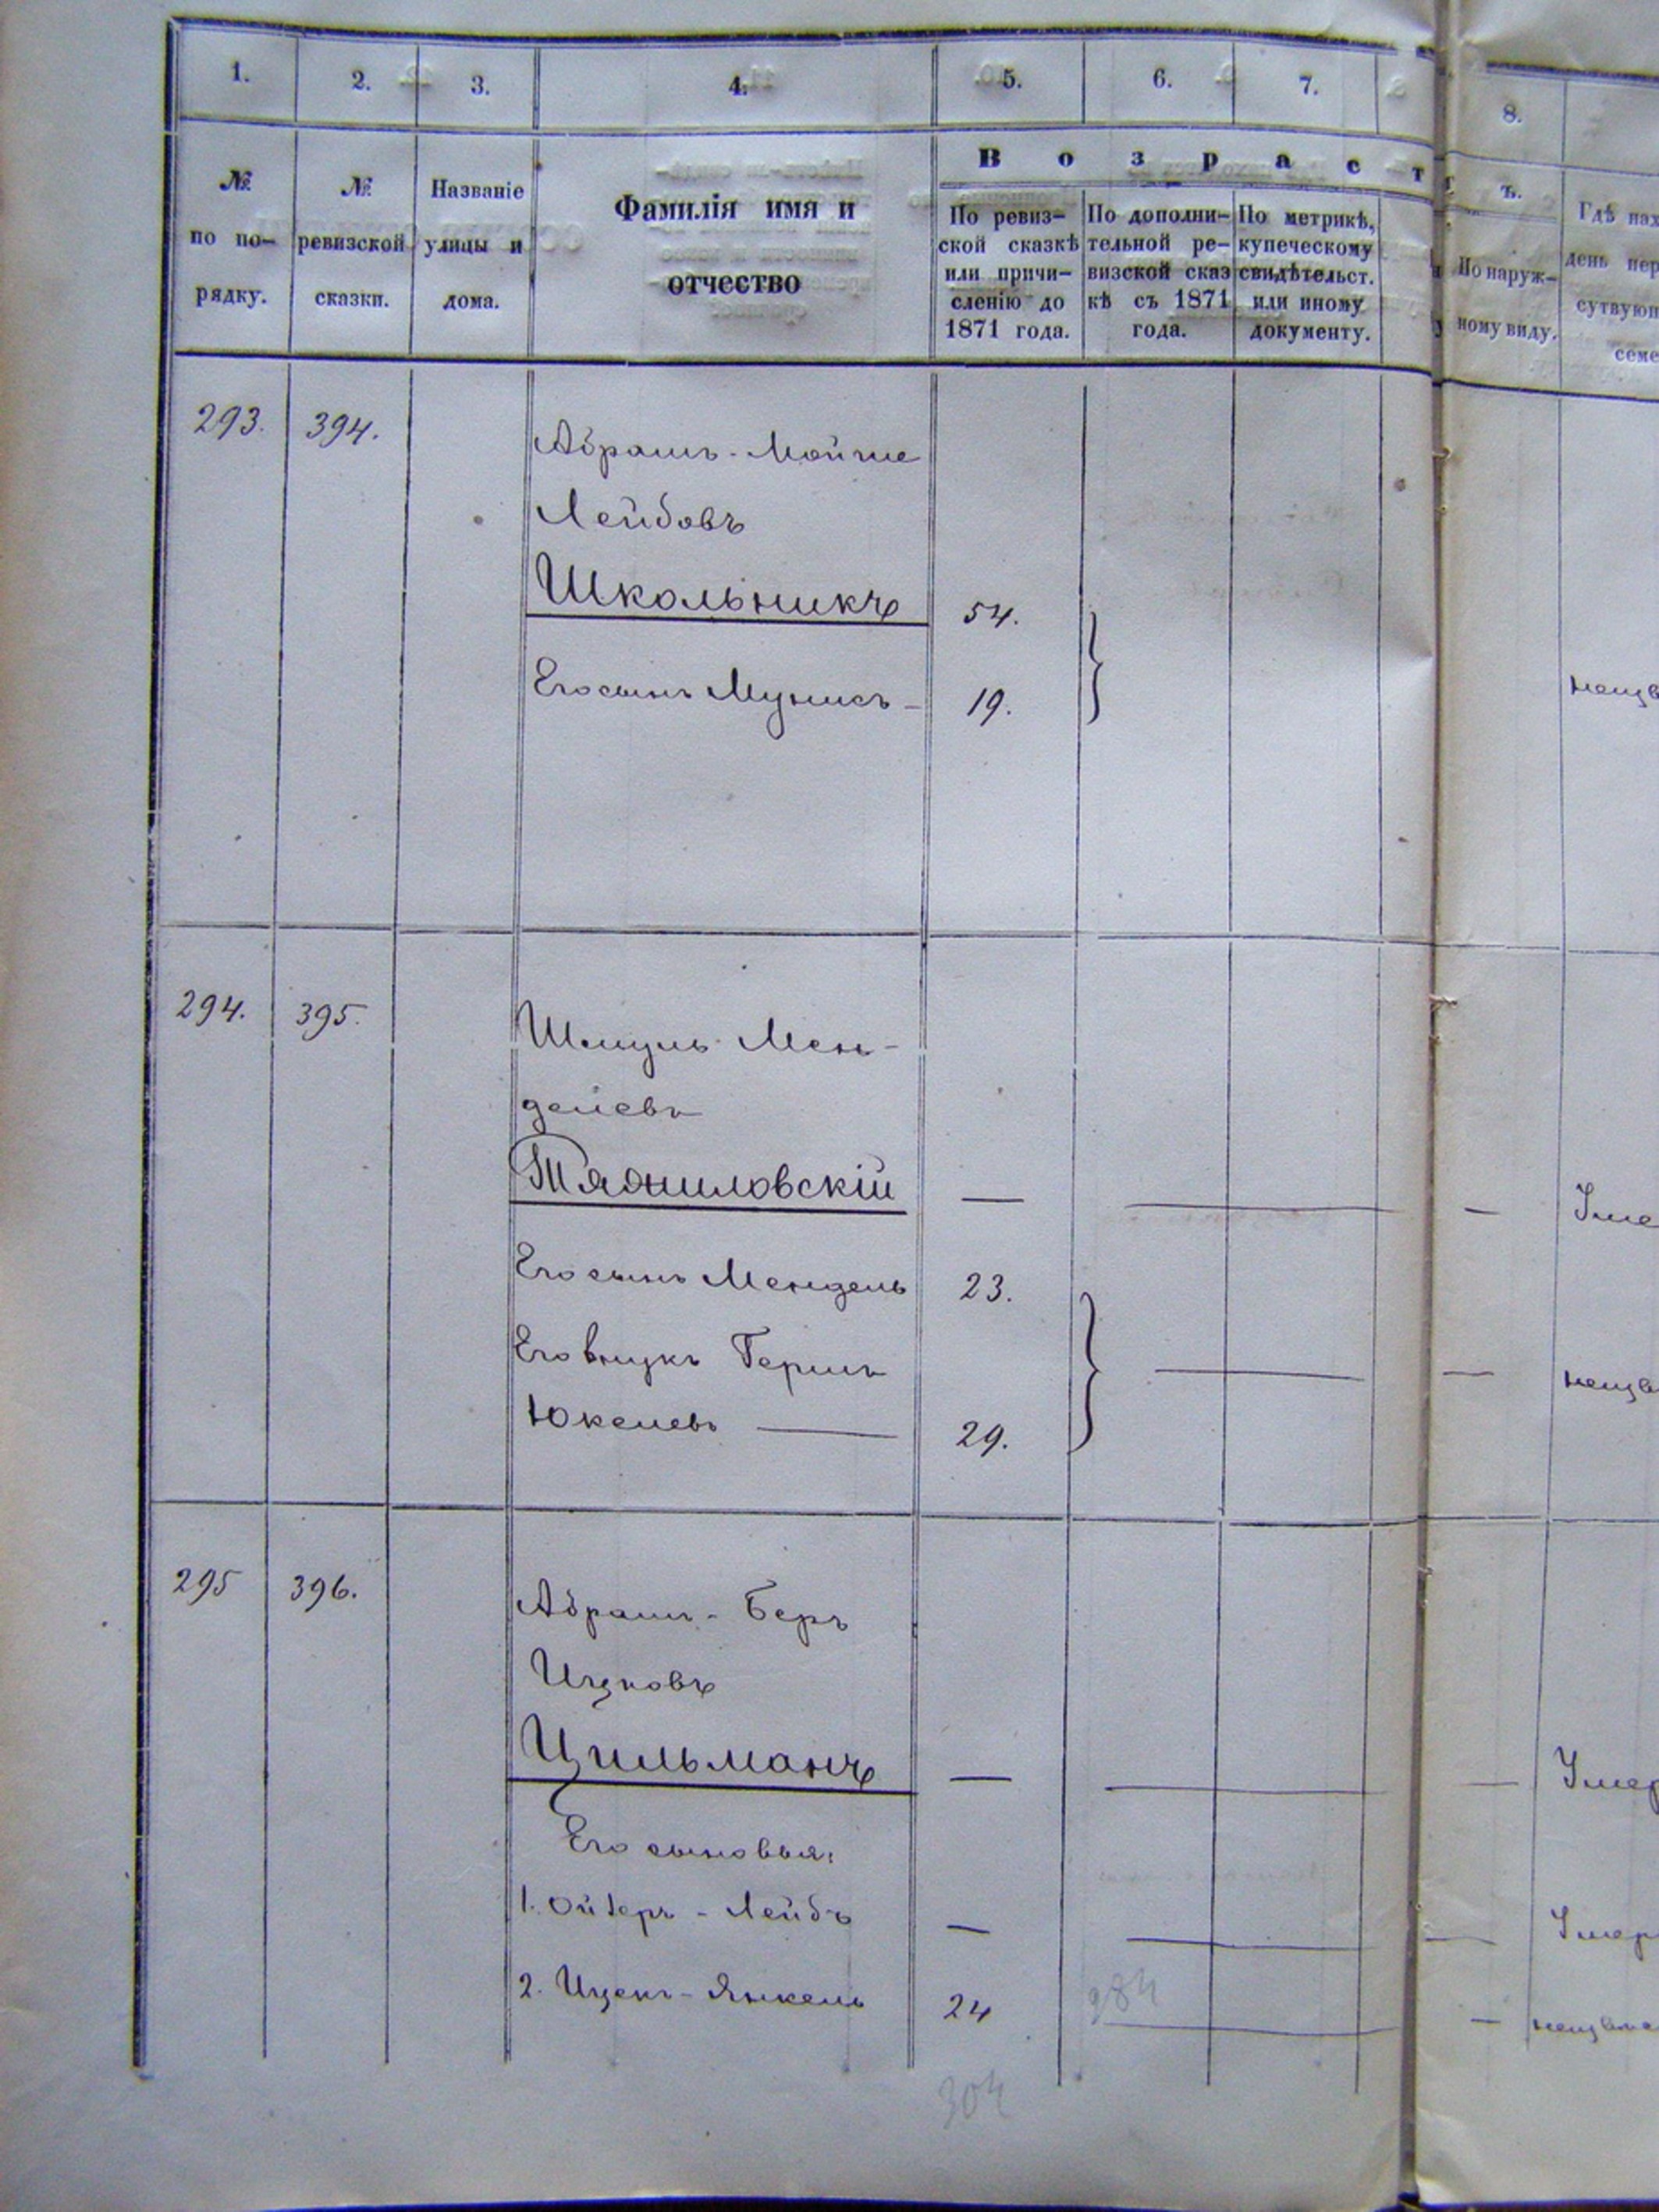 1. 2. 3. 4. 5. 6. 7. 8.
№ по по-рядку.
№ ревизской сказки.
Названіе улицы и дома.
Фамилія имя и
отчество
Возрастъ.
По ревиз-
ской сказкѣ
или причи-
сленію до
1871 года.
По дополни-
тельной ре-
визской сказ
кѣ съ 1871
года.
По метрикѣ,
купеческому
свидѣтельст.
или иному
документу.
По наруж-
ному виду.
Гдѣ нах
день пер
сутвующ
семе
293. 394.
Абрамъ-Мойше
Лейбовъ
Школьникъ 54.
Его сынъ Мунисъ - 19.
неизв
294. 395.
Шмуль Мен-
делевъ
— — — Уме
Его сынъ Мендель 23.
Его внукъ Гершъ
Юкелевъ — 29. — — неизв
295 396.
Абрамъ-Беръ
Ицковъ
Цильманъ — — — Умер
Его сыновья:
1. Ойзеръ-Лейбъ — — — Умер
2. Ицекъ-Янкель 24 — — неизвѣ
284
304